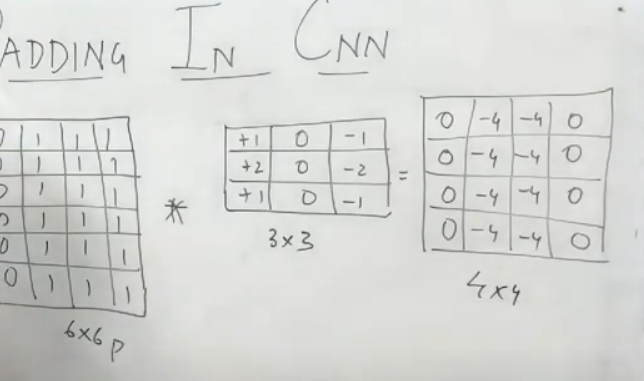 ADDING IN CNN
0 1 1 1
0 1 1 1
0 1 1 1
0 1 1 1
0 1 1 1
0 1 1 1
6x6 p
*
+1 0 -1
+2 0 -2
+1 0 -1
3x3
=
0 -4 -4 0
0 -4 -4 0
0 -4 -4 0
0 -4 -4 0
4x4